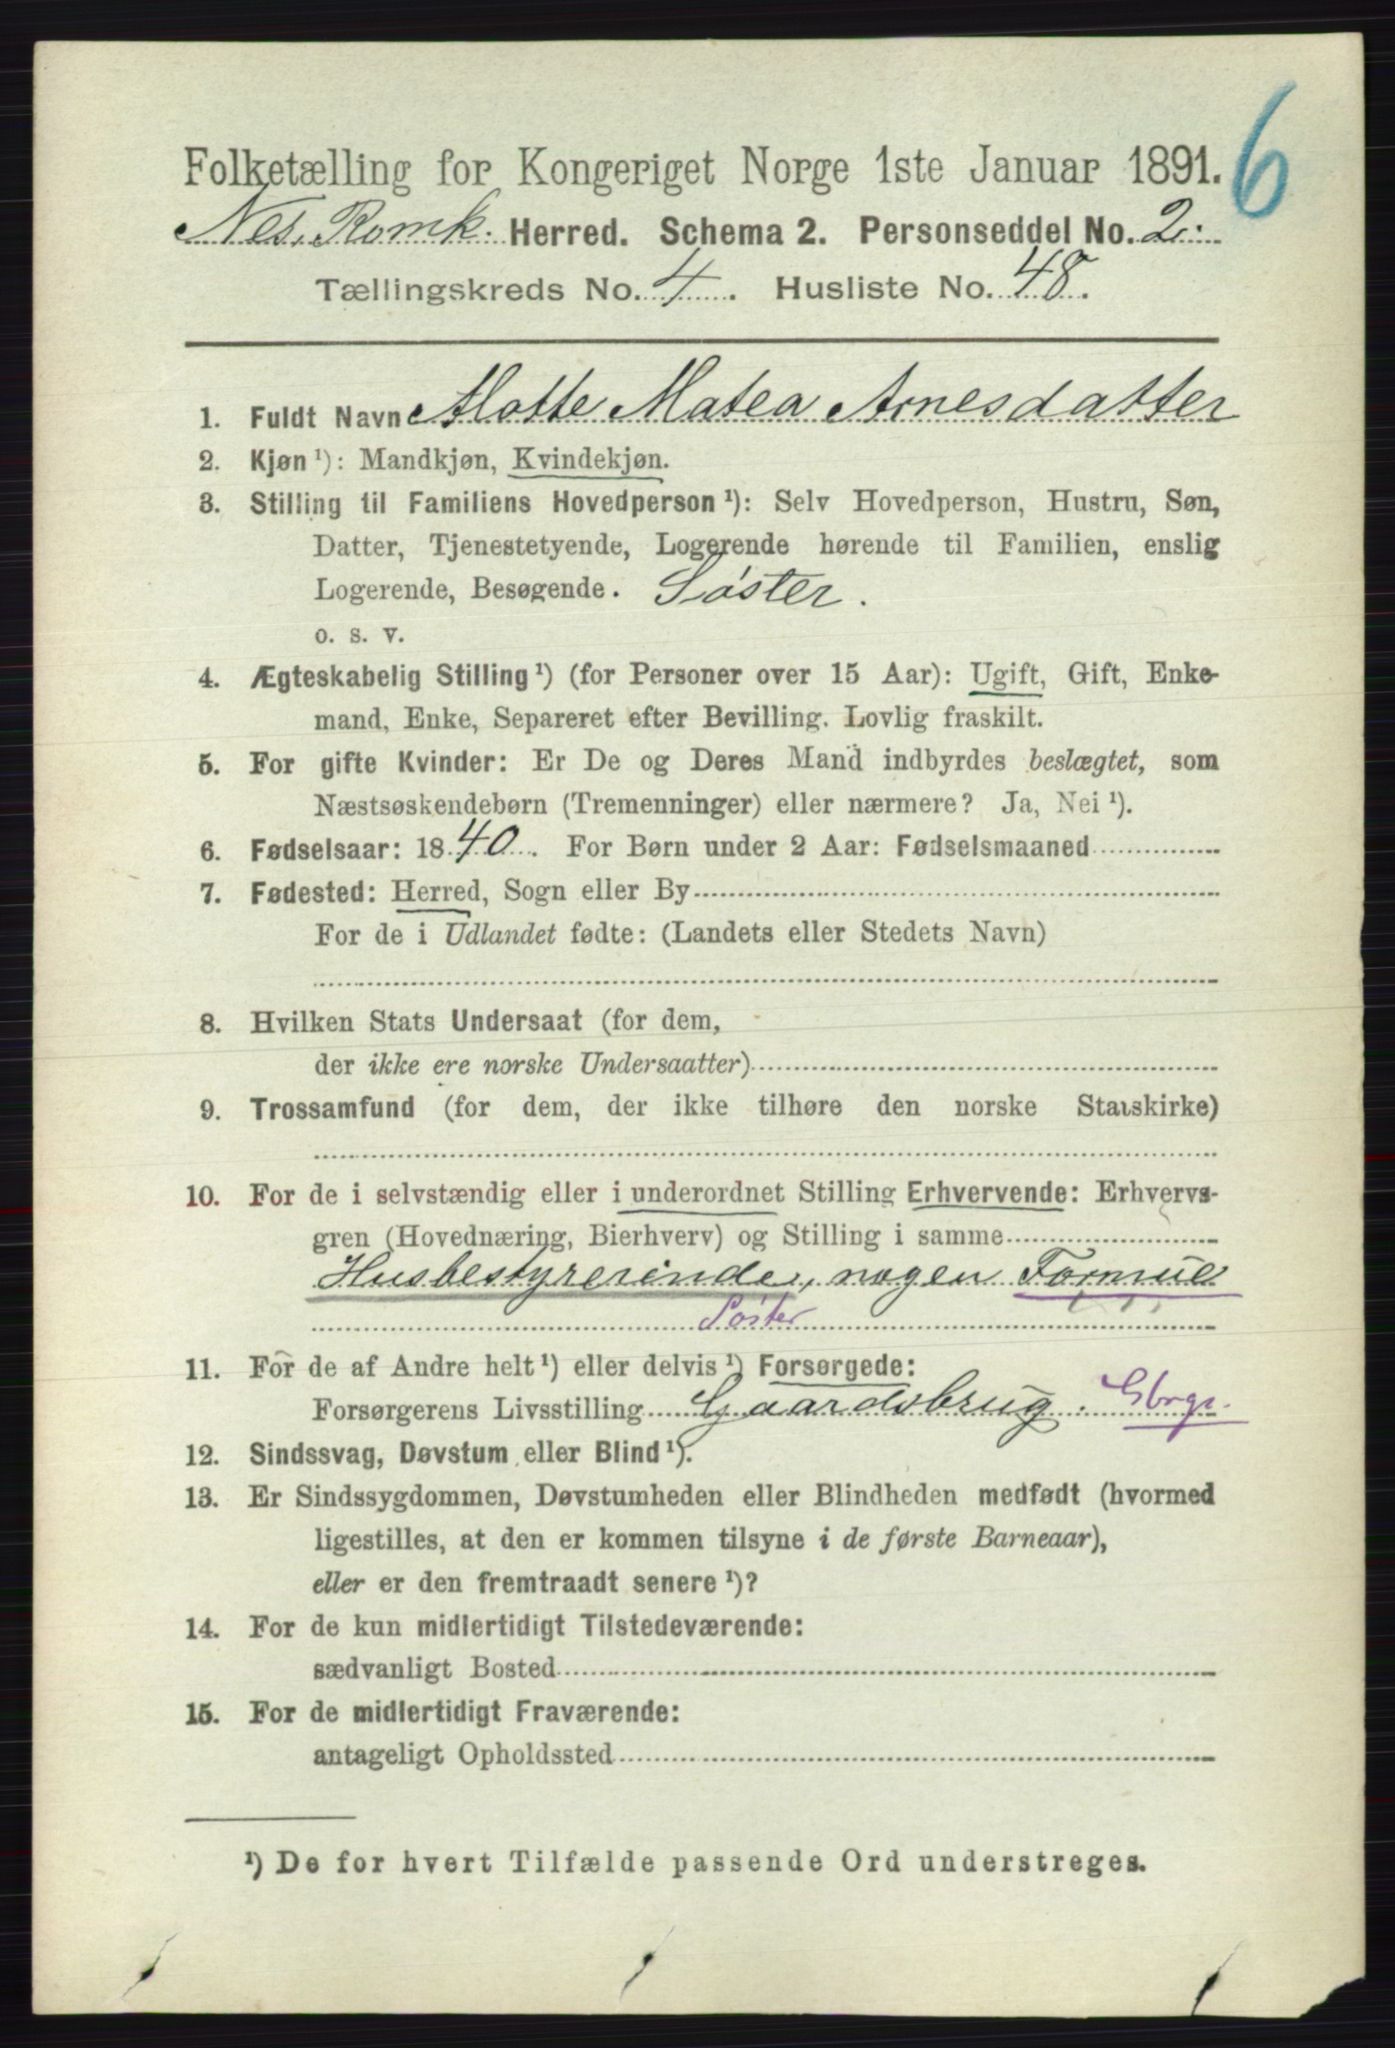 6
Folketælling for Kongeriget Norge 1ste Januar 1891.
Nes. Romk. Herred. Schema 2. Personseddel No. 2.
Tællingskreds No. 4. Husliste No. 48.
1. Fuldt Navn Motte Matea Arnesdatter
2. Kjøn ¹): Mandkjøn, Kvindekjøn.
3. Stilling til Familiens Hovedperson ¹): Selv Hovedperson, Hustru, Søn,
Datter, Tjenestetyende, Logerende hørende til Familien, enslig
Logerende, Besøgende. Søster.
o. s. v.
4. Ægteskabelig Stilling ¹) (for Personer over 15 Aar): Ugift, Gift, Enke-
mand, Enke, Separeret efter Bevilling. Lovlig fraskilt.
5. For gifte Kvinder: Er De og Deres Mand indbyrdes beslægtet, som
Næstsøskendebørn (Tremenninger) eller nærmere? Ja, Nei ¹).
6. Fødselsaar: 1840. For Børn under 2 Aar: Fødselsmaaned
7. Fødested: Herred, Sogn eller By
For de i Udlandet fødte: (Landets eller Stedets Navn)
8. Hvilken Stats Undersaat (for dem,
der ikke ere norske Undersaatter)
9. Trossamfund (for dem, der ikke tilhøre den norske Statskirke)
10. For de i selvstændig eller i underordnet Stilling Erhvervende: Erhvervs-
gren (Hovednæring, Bierhverv) og Stilling i samme
Husbestyrerinde, nogen Formue
Søster
11. For de af Andre helt ¹) eller delvis ¹) Forsørgede:
Forsørgerens Livsstilling Gaardsbrug. Gbrgr.
12. Sindssvag, Døvstum eller Blind ¹).
13. Er Sindssygdommen, Døvstumheden eller Blindheden medfødt (hvormed
ligestilles, at den er kommen tilsyne i de første Barneaar),
eller er den fremtraadt senere ¹)?
14. For de kun midlertidigt Tilstedeværende:
sædvanligt Bosted
15. For de midlertidigt Fraværende:
antageligt Opholdssted
¹) De for hvert Tilfælde passende Ord understreges.